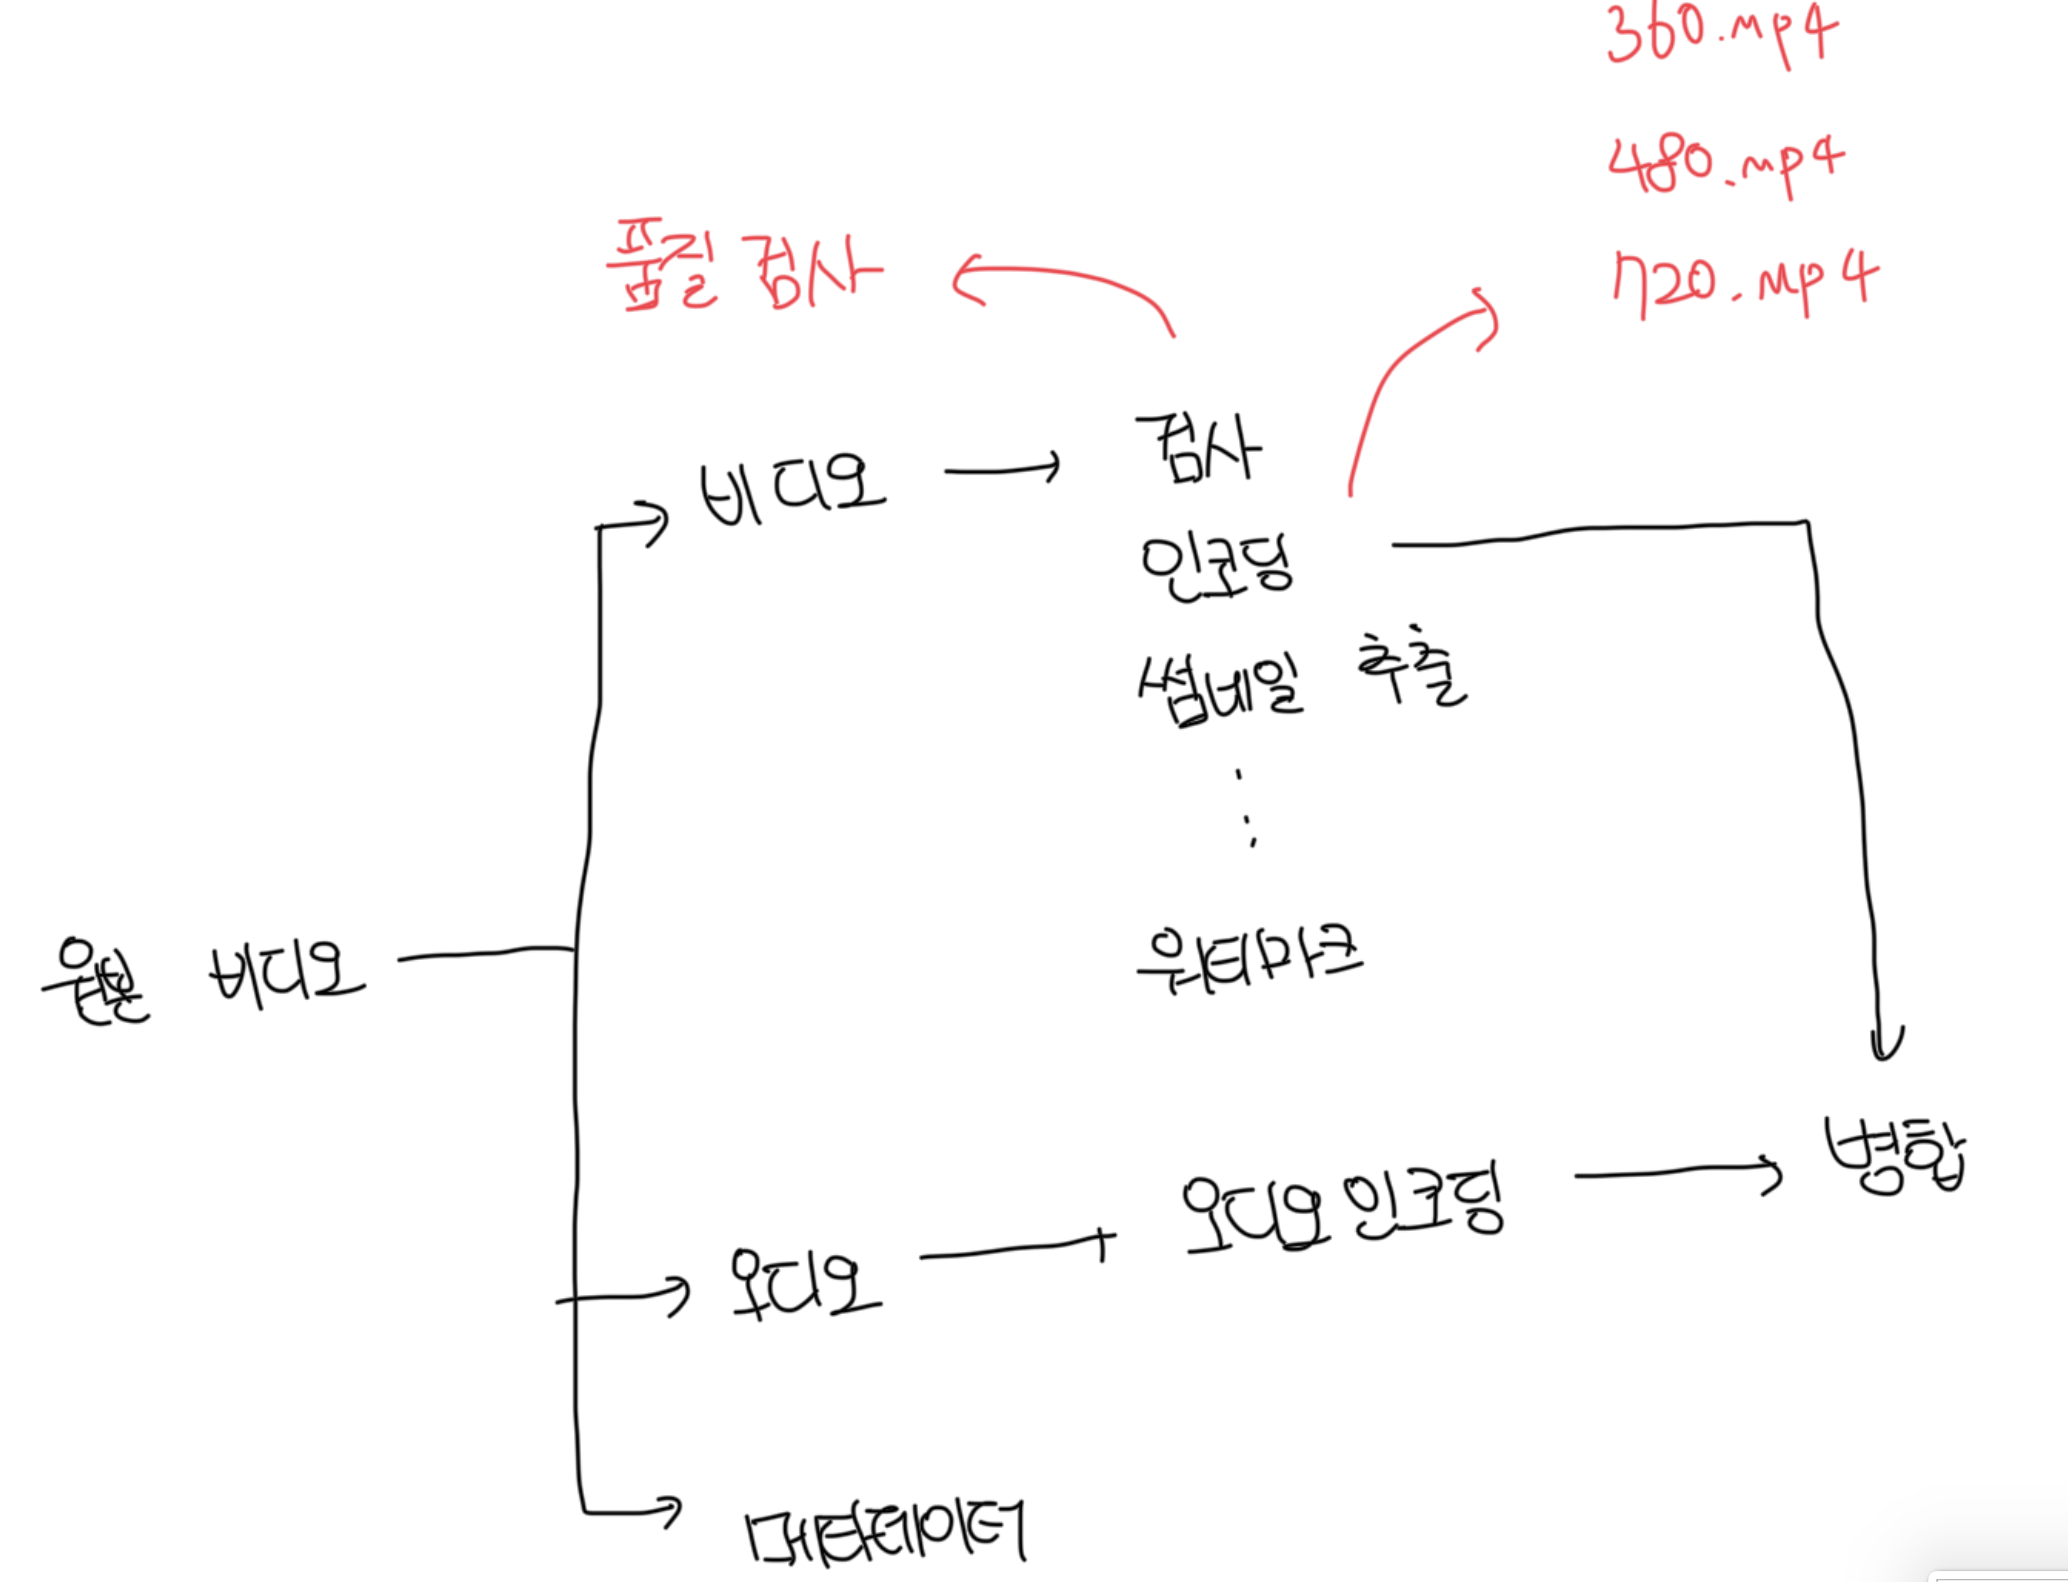 360.mp4
480.mp4
720.mp4
품질 검사
비디오
검사
인코딩
썸네일 추출
원본 비디오
워터마크
오디오
오디오 인코딩
병합
메타데이터